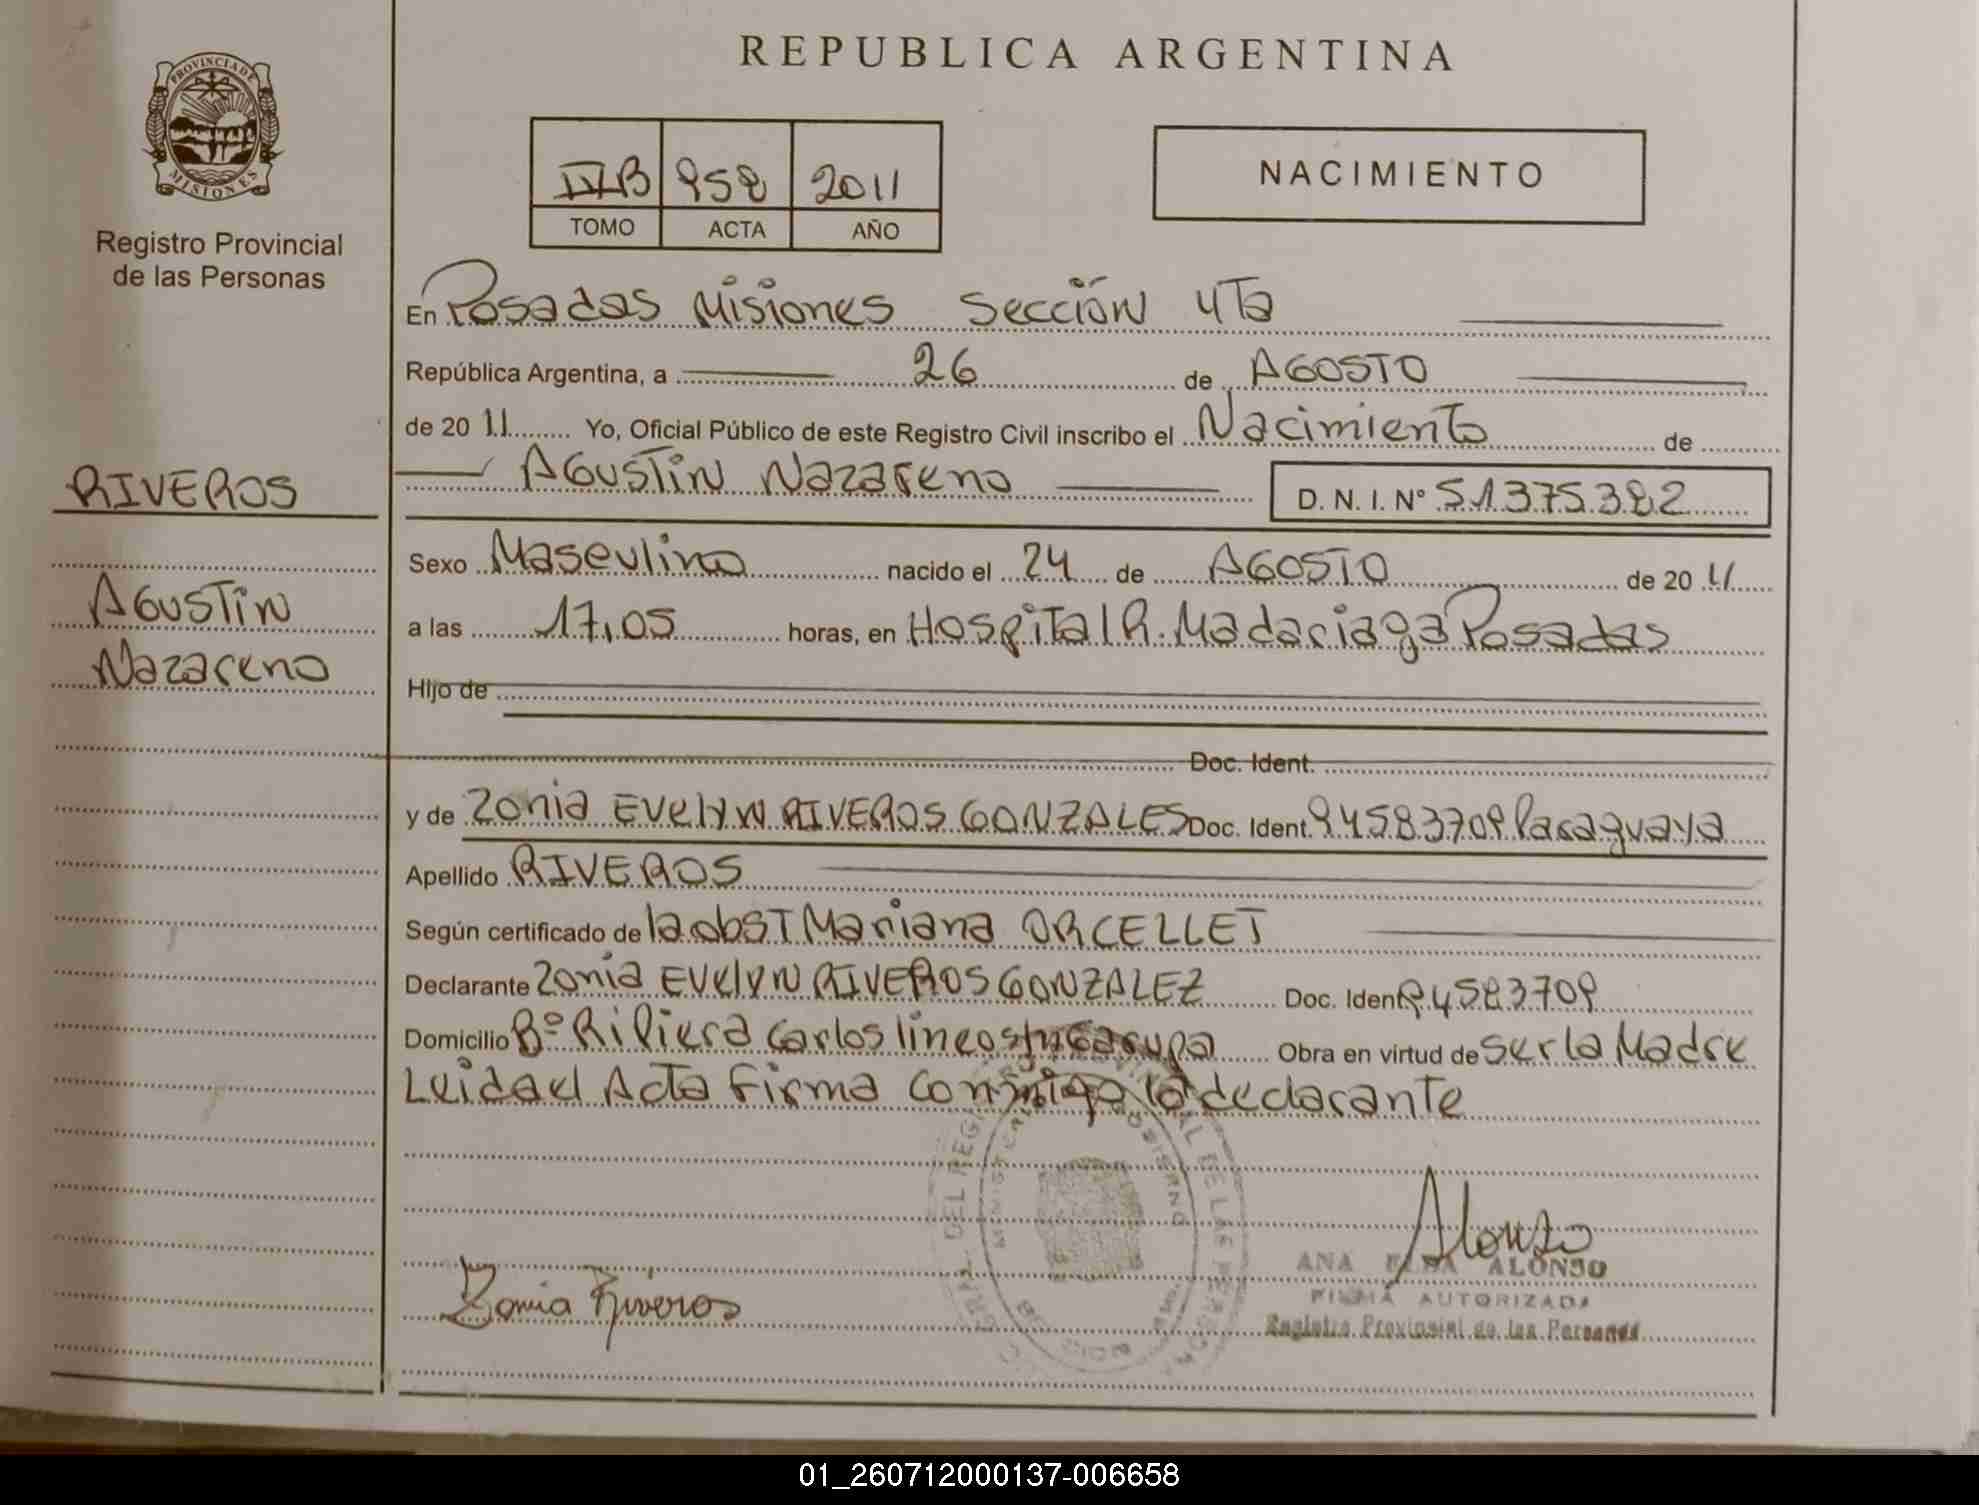 PROVINCIA DE
MISIONES
Registro Provincial
de las Personas
REPUBLICA ARGENTINA
958 2011
TOMO ACTA AÑO
NACIMIENTO
En Posadas Misiones Sección 4Ta
República Argentina, a 26 de AGOSTO
de 20 11 Yo, Oficial Público de este Registro Civil inscribo el Nacimiento de
AGUSTIN Nazareno D. N. I. Nº 51.375.382
RIVEROS
AGUSTIN
Nazareno
Sexo Masculino nacido el 24 de AGOSTO de 20 11
a las 17,05 horas, en Hospital R. Madariaga Posadas
Hijo de
Doc. Ident.
y de Zonia EVelyn RIVEROS GONZALES Doc. Ident. 94583709 Paraguaya
Apellido RIVEROS
Según certificado de la obst Mariana ORCELLET
Declarante Zonia EVelyn RIVEROS GONZALEZ Doc. Ident. 94583709
Domicilio Bº Riviera Carlos lineo s/n Garupa Obra en virtud de ser la Madre
Leida el Acta Firma conmigo la declarante
Zonia Riveros
Alonso
ANA ELBA ALONSO
FIRMA AUTORIZADA
Registro Provincial de las Personas
01_260712000137-006658